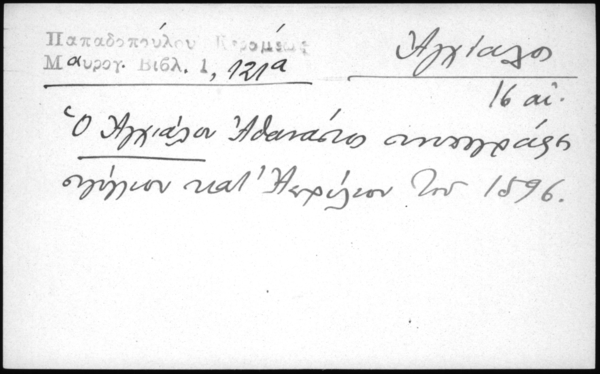 Παπαδοπούλου Κεραμέως
Μαυρογ. Βιβλ. 1, 121α
Ἀγχίαλος
16 αἰ.
Ὁ Ἀγχιάλου Ἀθανάσιος συνυπογράφει
σιγίλλιον κατ' Ἀπρίλιον τοῦ 1596.